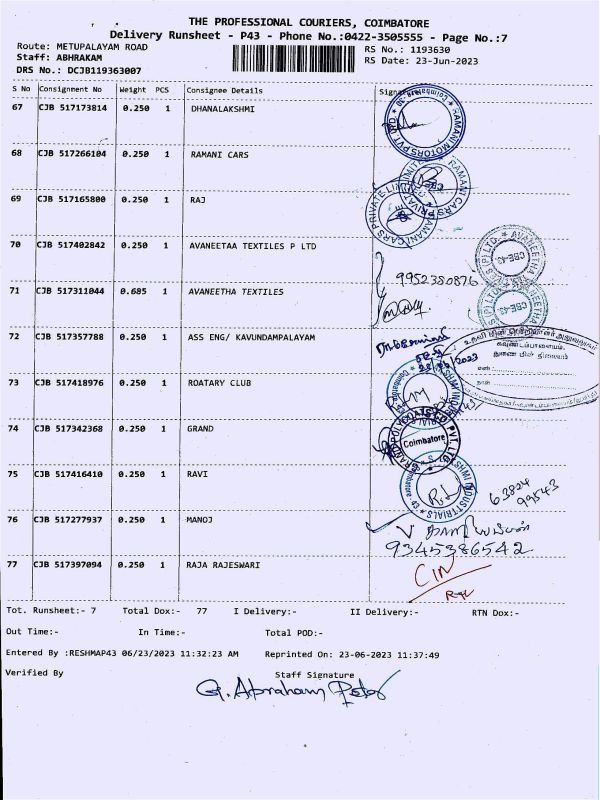 THE PROFESSIONAL COURIERS, COIMBATORE
Delivery Runsheet - P43 - Phone No.:0422-3505555 - Page No.:7
Route: METUPALAYAM ROAD
RS No.: 1193630
Staff: ABHRAKAM
RS Date: 23-Jun-2023
DRS No.: DCJB119363007
S No Consignment No Weight PCS Consignee Details
67 CJB 517173814 0.250 1 DHANALAKSHMI
RAMANI MOTORS PVT
68 CJB 517266104 0.250 1 RAMANI CARS
69 CJB 517165800 0.250 1 RAJ
RAMANI CARS PRIVATE LIMITED
70 CJB 517402842 0.250 1 AVANEETAA TEXTILES P LTD
AVANEETHA
CBE-43
9952380876
71 CJB 517311044 0.685 1 AVANEETHA TEXTILES
72 CJB 517357788 0.250 1 ASS ENG/ KAVUNDAMPALAYAM
கவுண்டம்பாளையம்.
73 CJB 517418976 0.250 1 ROATARY CLUB
74 CJB 517342368 0.250 1 GRAND
Coimbatore
75 CJB 517416410 0.250 1 RAVI
63824
99543
76 CJB 517277937 0.250 1 MANOJ
9345386542
77 CJB 517397094 0.250 1 RAJA RAJESWARI
Tot. Runsheet:- 7 Total Dox:- 77 I Delivery:- II Delivery:- RTN Dox:-
Out Time:- In Time:- Total POD:-
Entered By :RESHMAP43 06/23/2023 11:32:23 AM Reprinted On: 23-06-2023 11:37:49
Verified By Staff Signature
G. Abraham Peter